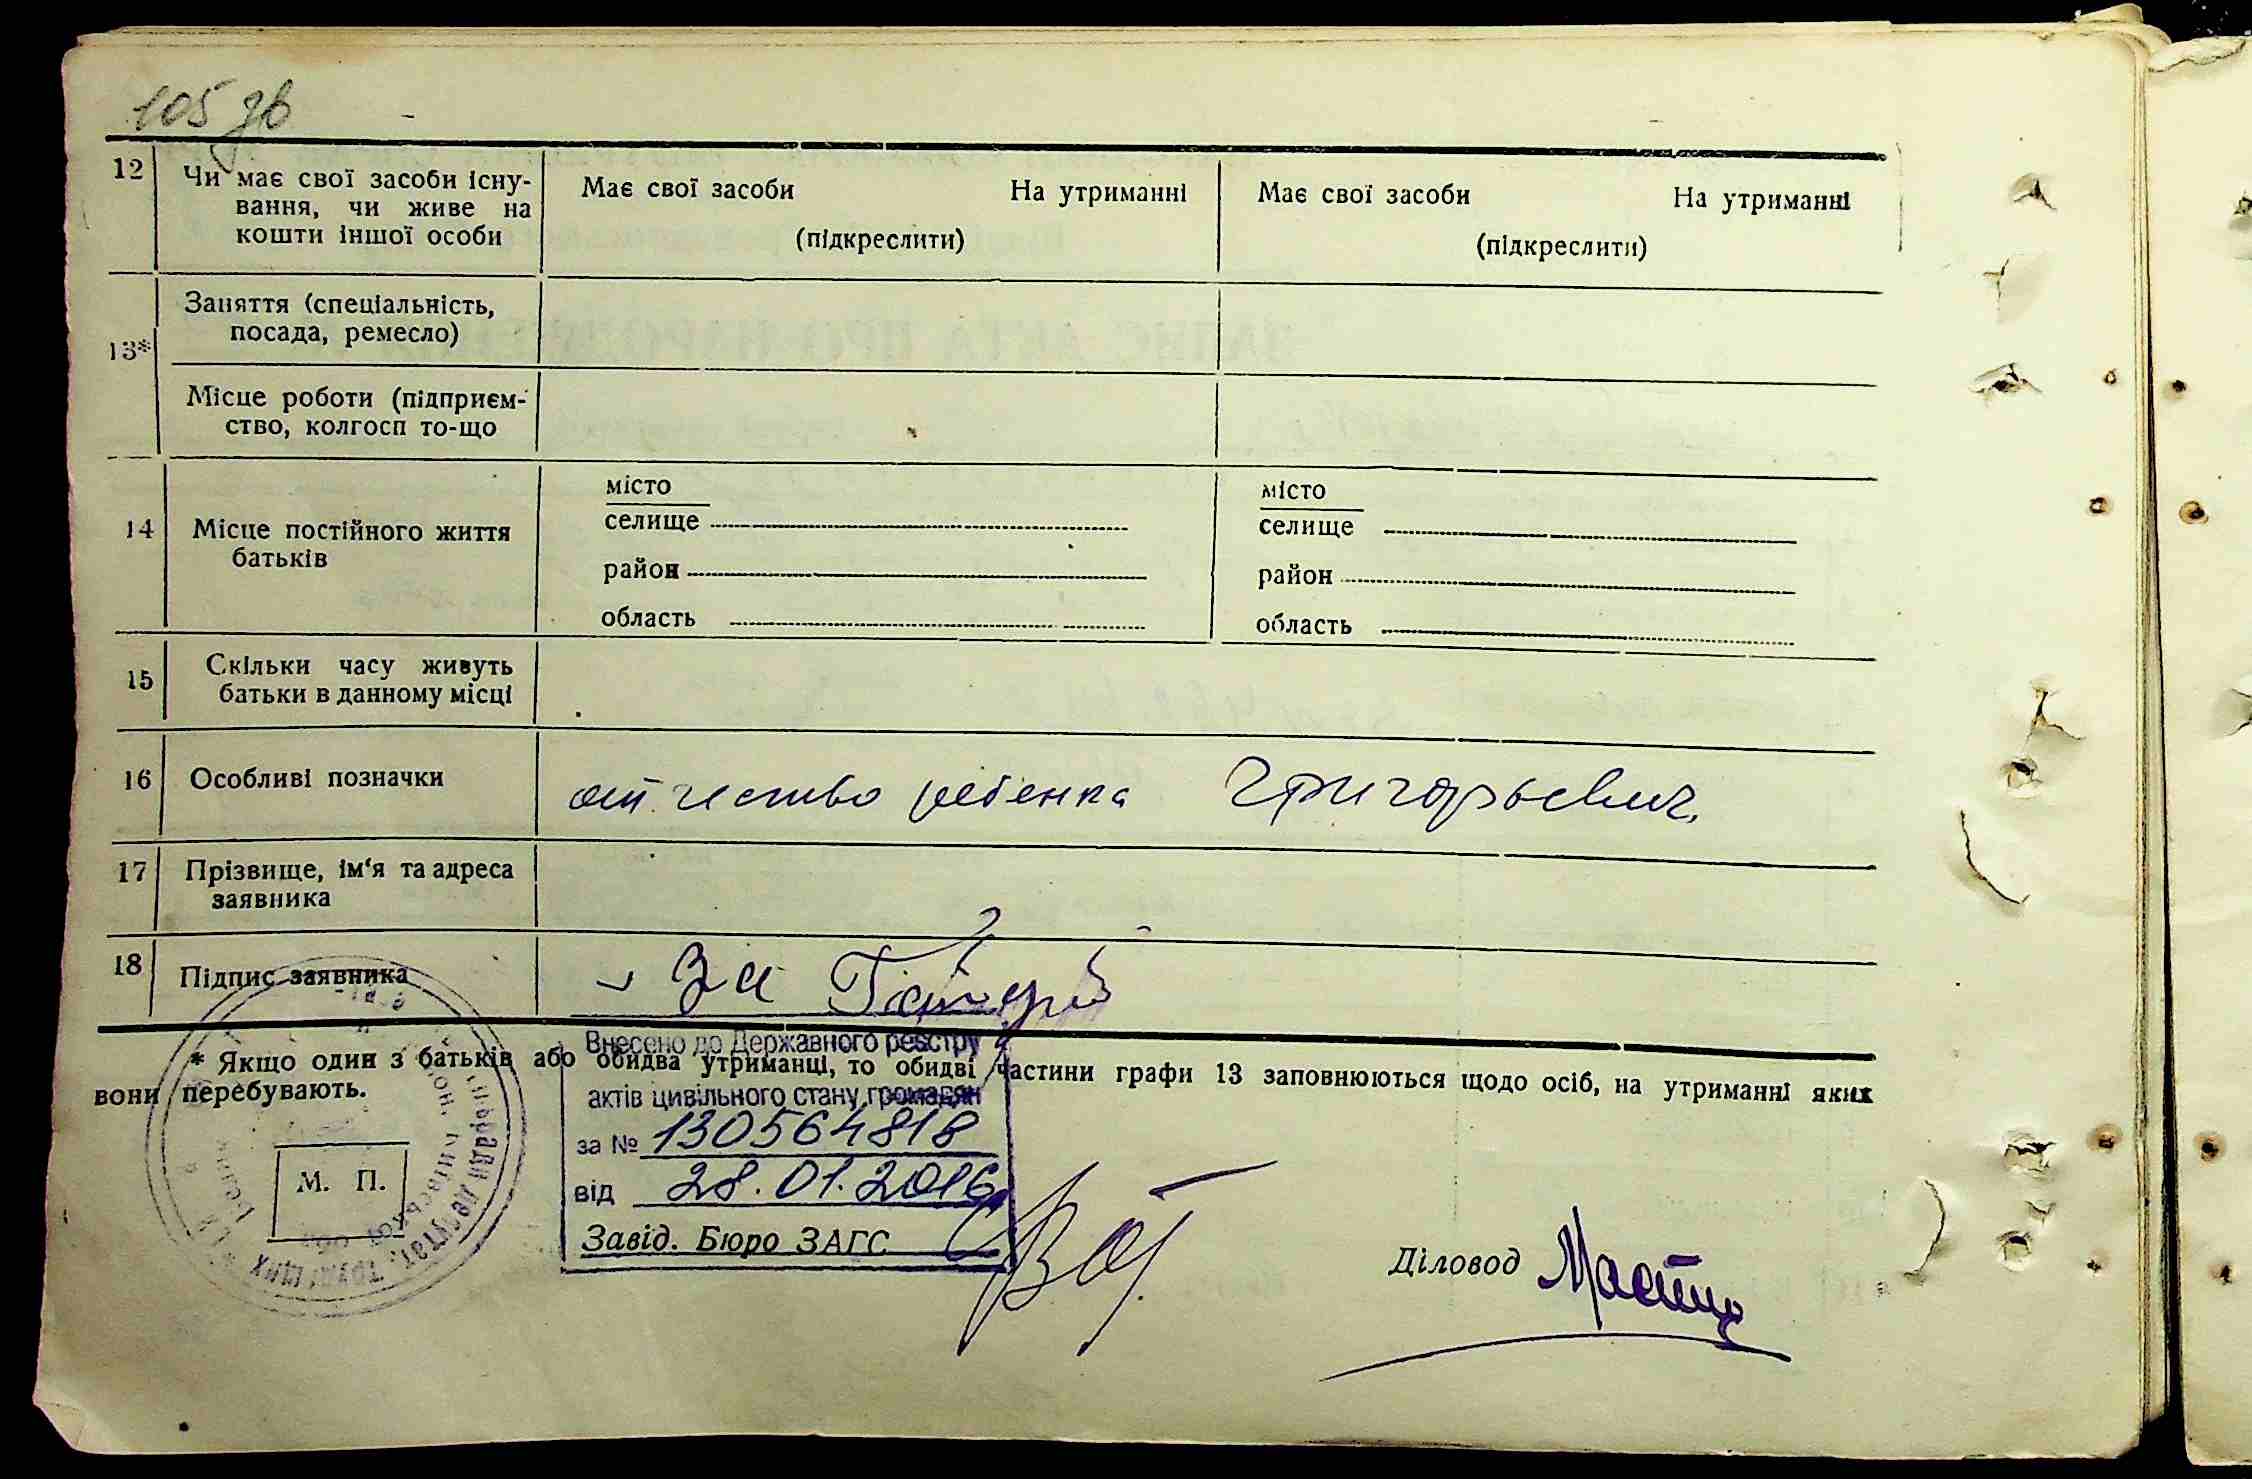 105 зв
12 Чи має свої засоби існу-
вання, чи живе на
кошти іншої особи
Має свої засоби На утриманні
(підкреслити)
Має свої засоби На утриманні
(підкреслити)
13* Заняття (спеціальність,
посада, ремесло)
Місце роботи (підприєм-
ство, колгосп то-що
14 Місце постійного життя
батьків
місто
селище
район
область
місто
селище
район
область
15 Скільки часу живуть
батьки в данному місці
16 Особливі позначки
отчество ребенка Григорьевич.
17 Прізвище, ім'я та адреса
заявника
18 Підпис заявника
За
* Якщо один з батьків або обидва утриманці, то обидві частини графи 13 заповнюються щодо осіб, на утриманні яких
вони перебувають.
Внесено до Державного реєстру
актів цивільного стану громадян
за № 130564818
від 28.01.2016
Завід. Бюро ЗАГС
М. П.
Діловод